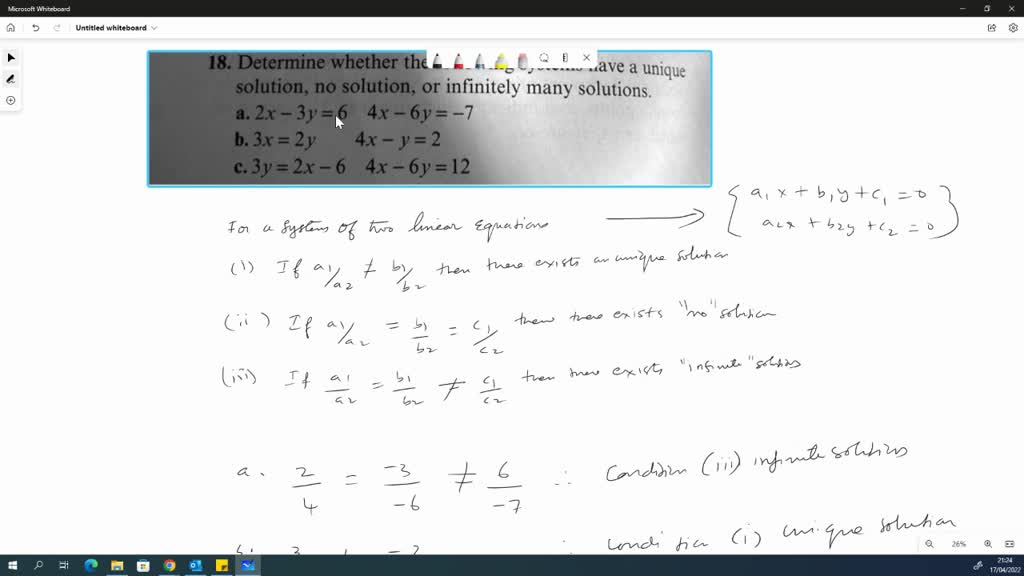 Microsoft Whiteboard
Untitled whiteboard
18. Determine whether the have a unique
solution, no solution, or infinitely many solutions.
a. 2x − 3y = 6 4x − 6y = −7
b. 3x = 2y 4x − y = 2
c. 3y = 2x − 6 4x − 6y = 12
For a system of two linear equations → { a₁x + b₁y + c₁ = 0
a₂x + b₂y + c₂ = 0 }
(i) If a₁/a₂ ≠ b₁/b₂ then there exists an unique solution
(ii) If a₁/a₂ = b₁/b₂ = c₁/c₂ then there exists "no" solution
(iii) If a₁/a₂ = b₁/b₂ ≠ c₁/c₂ then there exists "infinite" solutions
a. 2/4 = −3/−6 ≠ 6/−7 ∴ Condition (iii) infinite solutions
Condition (i) unique solution
26%
21:24
17/04/2022